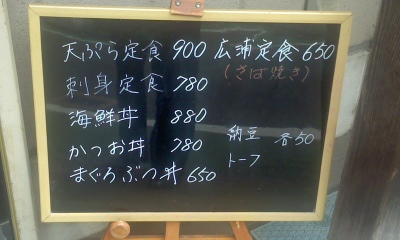 天ぷら定食 900
刺身定食 780
海鮮丼 880
かつお丼 780
まぐろぶつ丼 650
広浦定食 650
(さば焼き)
納豆 各50
トーフ